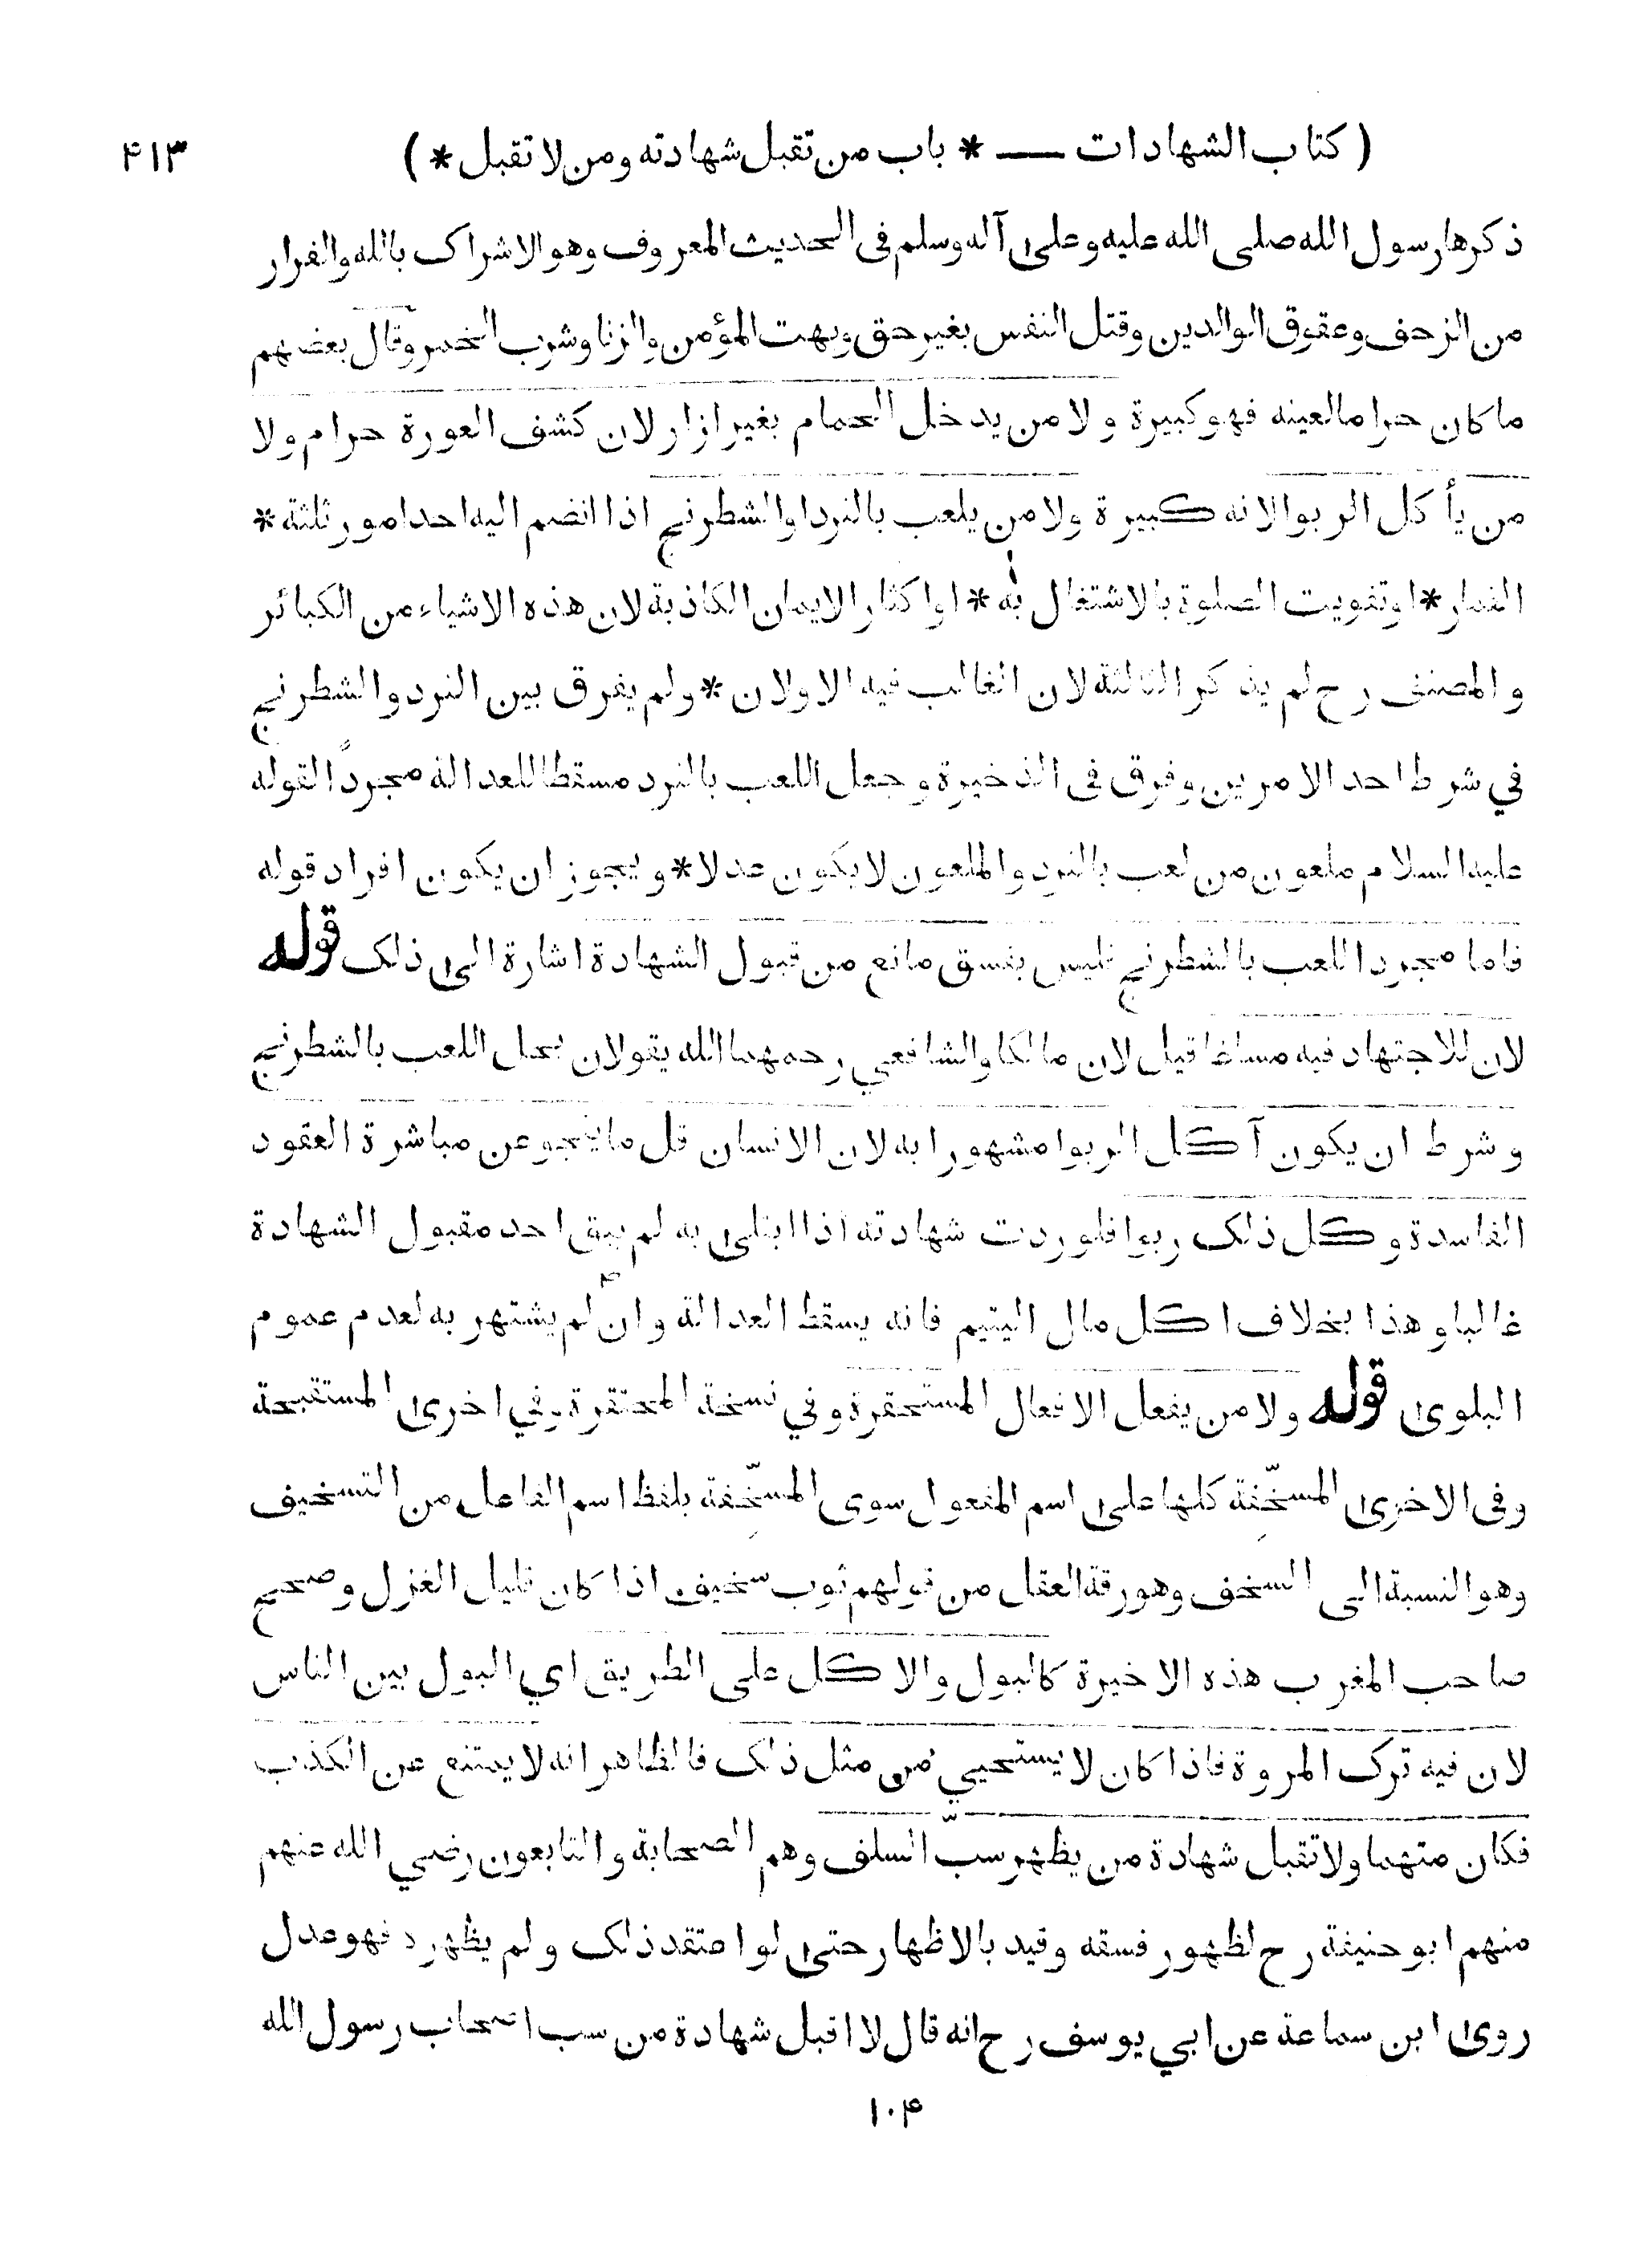 ( كتاب الشهادات — * باب من تقبل شهادته ومن لا تقبل * ) ۴۱۳
ذكرها رسول الله صلى الله عليه وعلى آله وسلم فى الحديث المعروف وهو الاشراك بالله والفرار
من الزحف وعقوق الوالدين وقتل النفس بغير حق وبهت المؤمن والزنا وشرب الخمر وقال بعضهم
ما كان حراما لعينه فهو كبيرة ولا من يدخل الحمام بغير ازار لان كشف العورة حرام ولا
من يأكل الربوا لانه كبيرة ولا من يلعب بالنرد او الشطرنج اذا انضم اليه احد امور ثلثة *
القمار * او تفويت الصلوة بالاشتغال به * او اكثار الايمان الكاذبة لان هذه الاشياء من الكبائر
والمصنف رح لم يذكر الثالثة لان الغالب فيه الاولان * ولم يفرق بين النرد والشطرنج
في شرط احد الامرين وفرق فى الذخيرة وجعل اللعب بالنرد مسقطا للعدالة مجردًا لقوله
عليه السلام ملعون من لعب بالنرد والملعون لا يكون عدلا * ويجوز ان يكون افراد قوله
فاما مجرد اللعب بالشطرنج فليس بفسق مانع من قبول الشهادة اشارة الى ذلك قوله
لان للاجتهاد فيه مساغا قيل لان مالكا والشافعي رحمهما الله يقولان بحل اللعب بالشطرنج
وشرط ان يكون آكل الربوا مشهورا به لان الانسان قل ما ينجو عن مباشرة العقود
الفاسدة وكل ذلك ربوا فلو ردت شهادته اذا ابتلى به لم يبق احد مقبول الشهادة
غالبا وهذا بخلاف اكل مال اليتيم فانه يسقط العدالة وان لم يشتهر به لعدم عموم
البلوى قوله ولا من يفعل الافعال المستحقرة وفي نسخة المحتقرة وفي اخرى المستقبحة
وفى الاخرى المسخّفة كلها على اسم المفعول سوى المسخِّفة بلفظ اسم الفاعل من التسخيف
وهو النسبة الى السخف وهو رقة العقل من قولهم ثوب سخيف اذا كان قليل الغزل وصحح
صاحب المغرب هذه الاخيرة كالبول والاكل على الطريق اي البول بين الناس
لان فيه ترك المروة فاذا كان لا يستحيي من مثل ذلك فالظاهر انه لا يمتنع عن الكذب
فكان متهما ولا تقبل شهادة من يظهر سبّ السلف وهم الصحابة والتابعون رضي الله عنهم
منهم ابو حنيفة رح لظهور فسقه وقيد بالاظهار حتى لو اعتقد ذلك ولم يظهره فهو عدل
روى ابن سماعة عن ابي يوسف رح انه قال لا اقبل شهادة من سب اصحاب رسول الله
۱۰۴